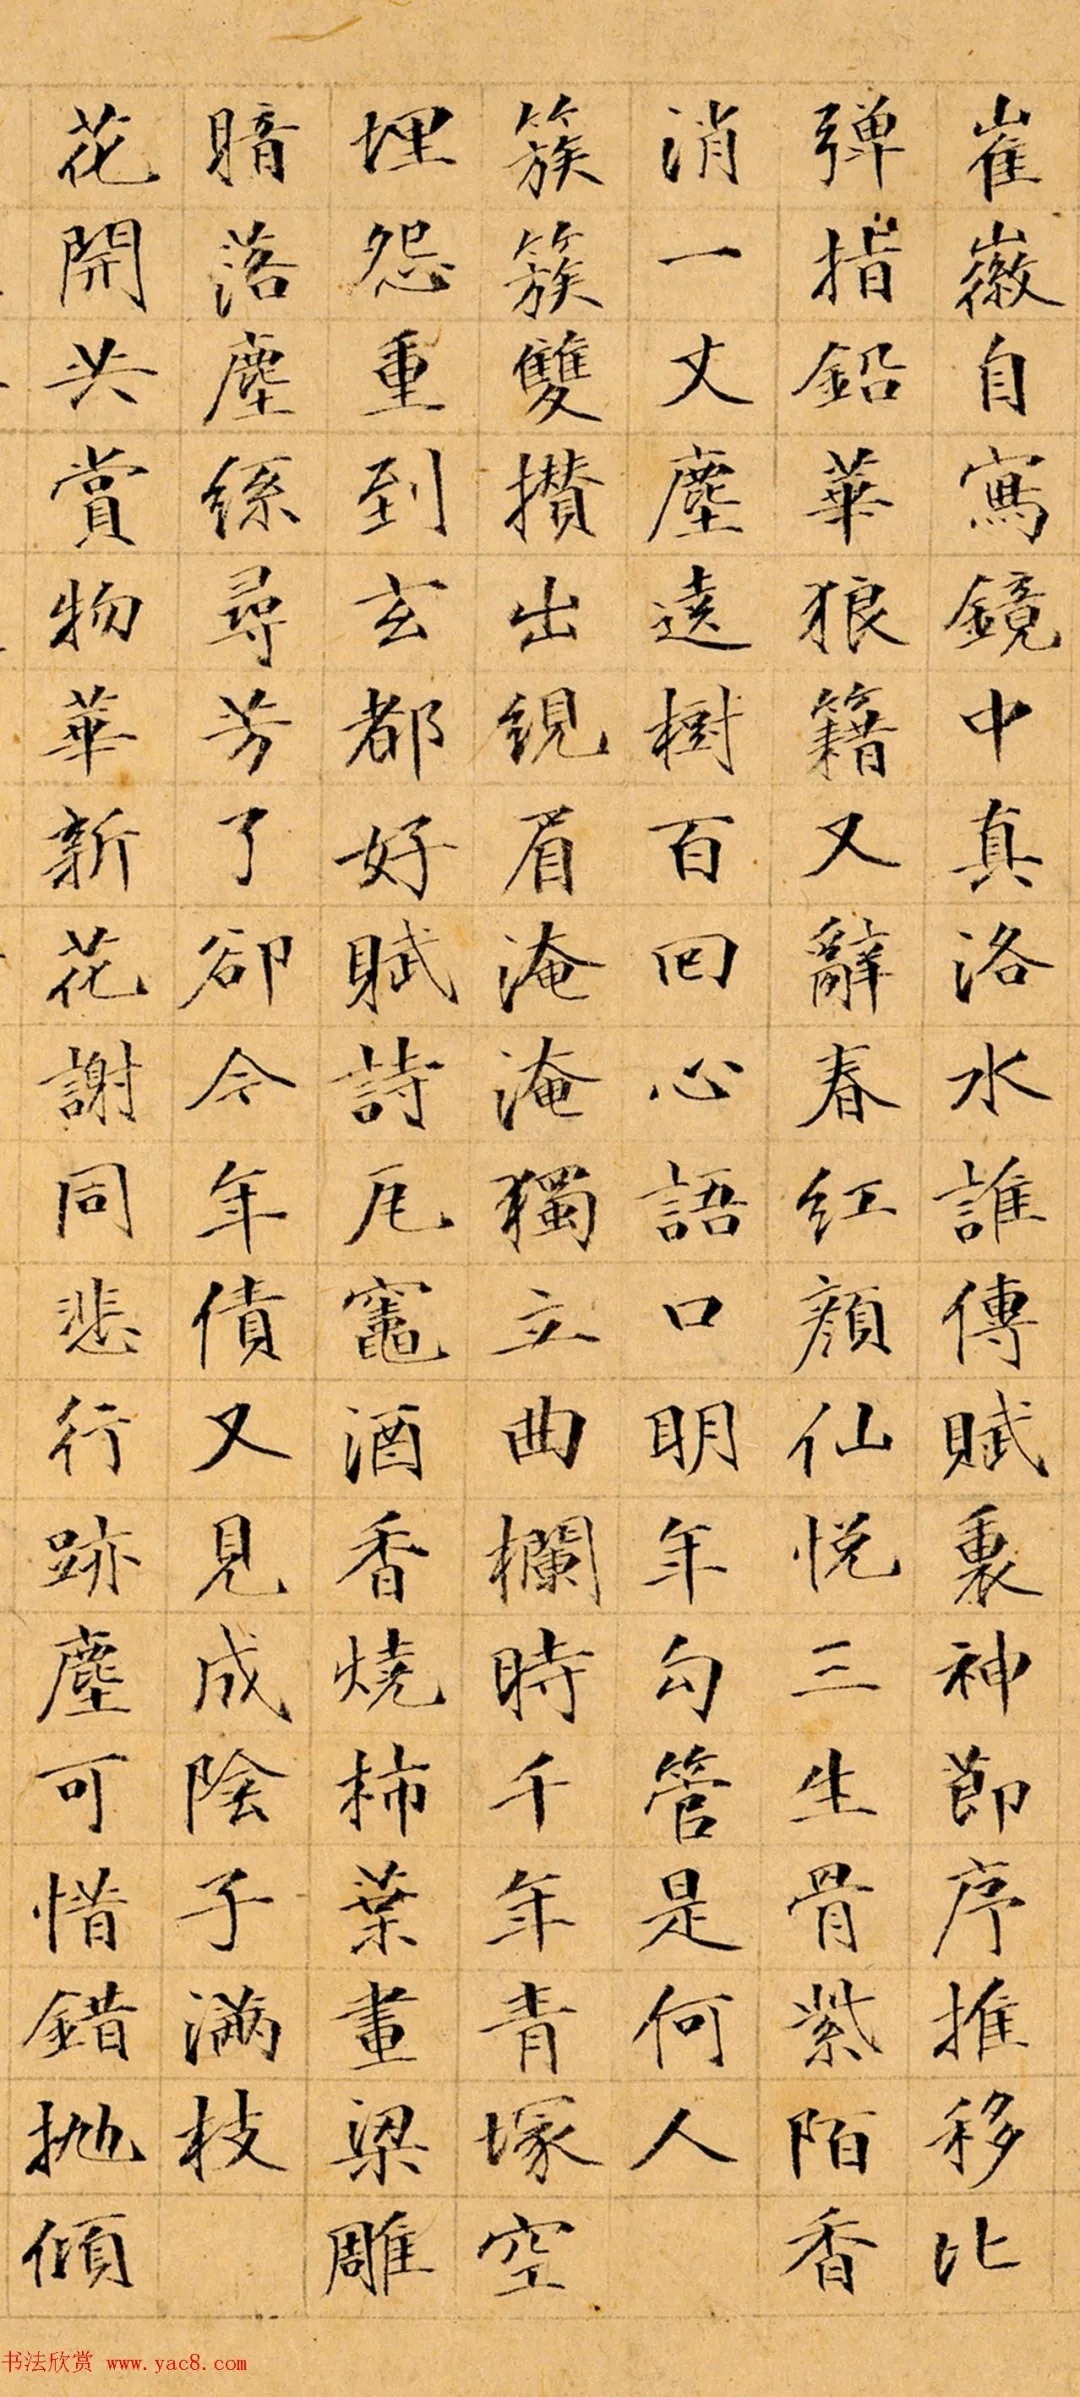 崔徽自寫鏡中真洛水誰傳賦裏神節序推移比
弹指鉛華狼籍又辭春紅顏仙悅三生骨紫陌香
消一丈塵遠樹百回心語口明年勾管是何人
簇簇雙攢出鋧眉淹淹獨立曲欄時千年青塚空
埋怨重到玄都好賦詩厇竈酒香燒柿葉畫梁雕
暗落塵絲尋芳了卻今年債又見成陰子滿枝
花開共賞物華新花謝同悲行跡塵可惜錯拋傾
书法欣赏 www.yac8.com